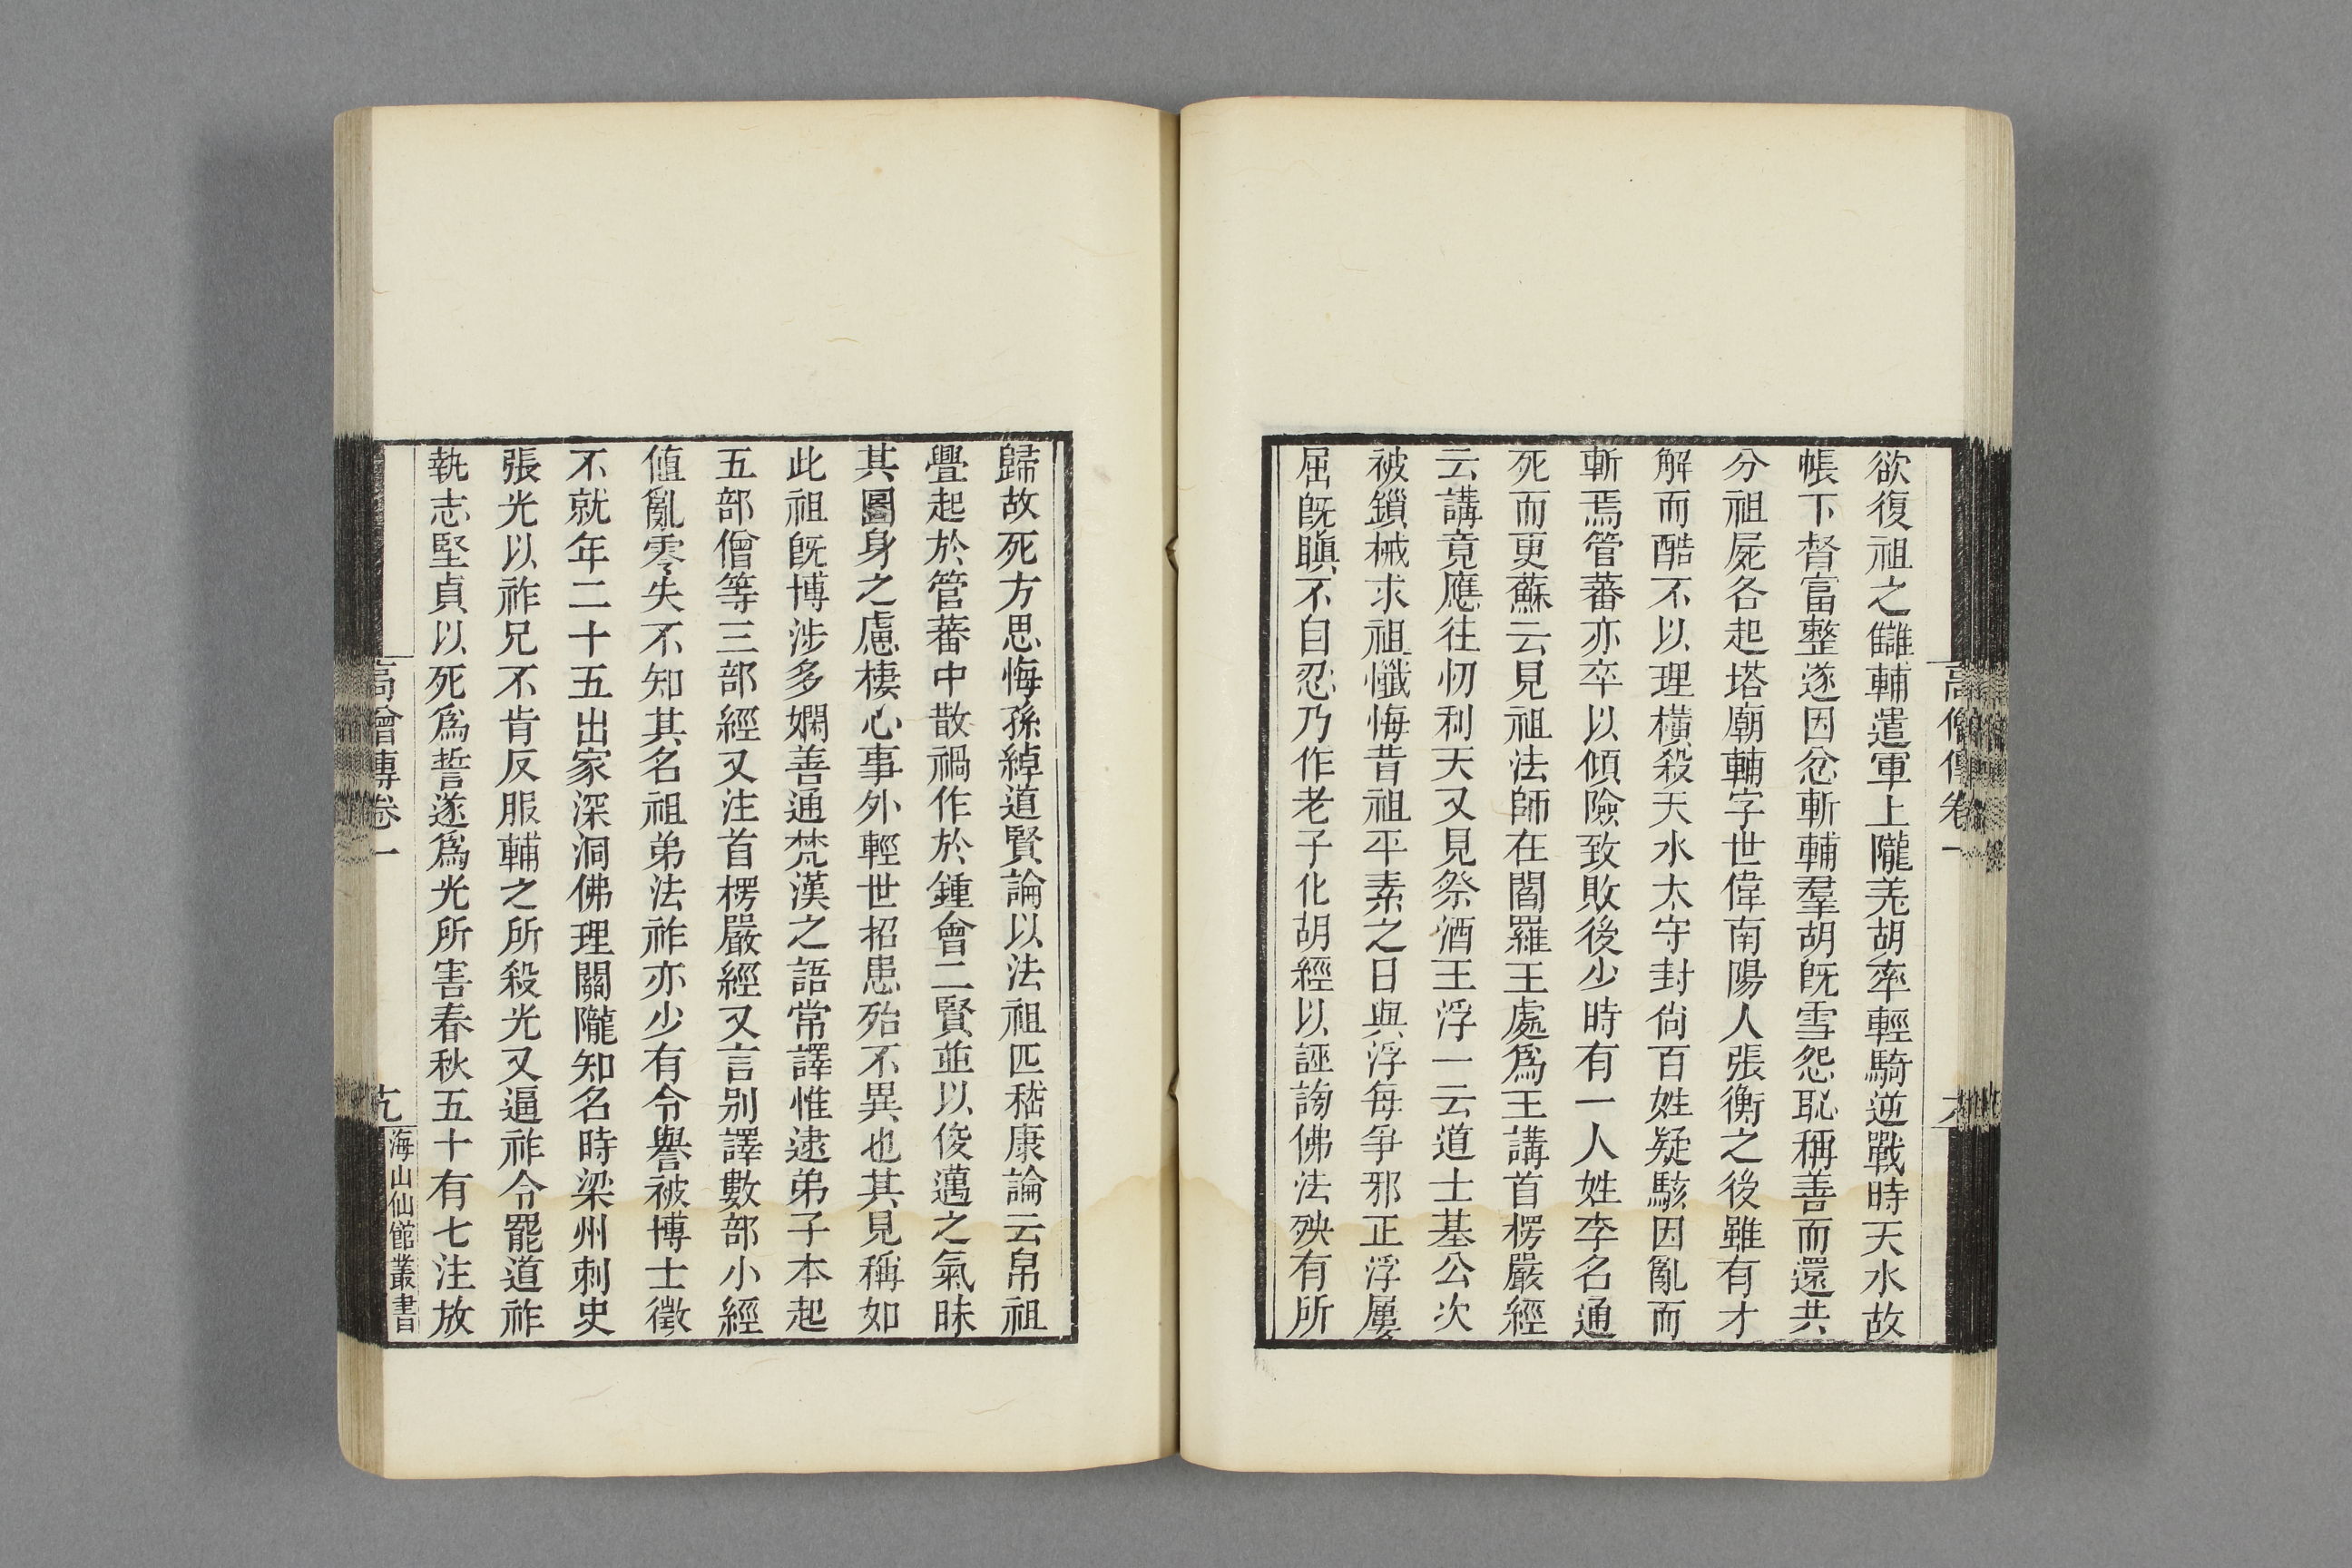 高僧傳卷一
欲復祖之讎輔遣軍上隴羌胡率輕騎逆戰時天水故
帳下督富整遂因忿斬輔羣胡旣雪怨恥稱善而還共
分祖屍各起塔廟輔字世偉南陽人張衡之後雖有才
解而酷不以理橫殺天水太守封尙百姓疑駭因亂而
斬焉管蕃亦卒以傾險致敗後少時有一人姓李名通
死而更蘇云見祖法師在閻羅王處爲王講首楞嚴經
云講竟應往忉利天又見祭酒王浮一云道士基公次
被鎖械求祖懺悔昔祖平素之日與浮每爭邪正浮屢
屈旣瞋不自忍乃作老子化胡經以誣謗佛法殃有所
歸故死方思悔孫綽道賢論以法祖匹嵇康論云帛祖
舋起於管蕃中散禍作於鍾會二賢並以俊邁之氣昧
其圖身之慮棲心事外輕世招患殆不異也其見稱如
此祖旣博涉多嫻善通梵漢之語常譯惟逮弟子本起
五部僧等三部經又注首楞嚴經又言別譯數部小經
値亂零失不知其名祖弟法祚亦少有令譽被博士徵
不就年二十五出家深洞佛理關隴知名時梁州刺史
張光以祚兄不肯反服輔之所殺光又逼祚令罷道祚
執志堅貞以死爲誓遂爲光所害春秋五十有七注放
高僧傳卷一
海山仙館叢書